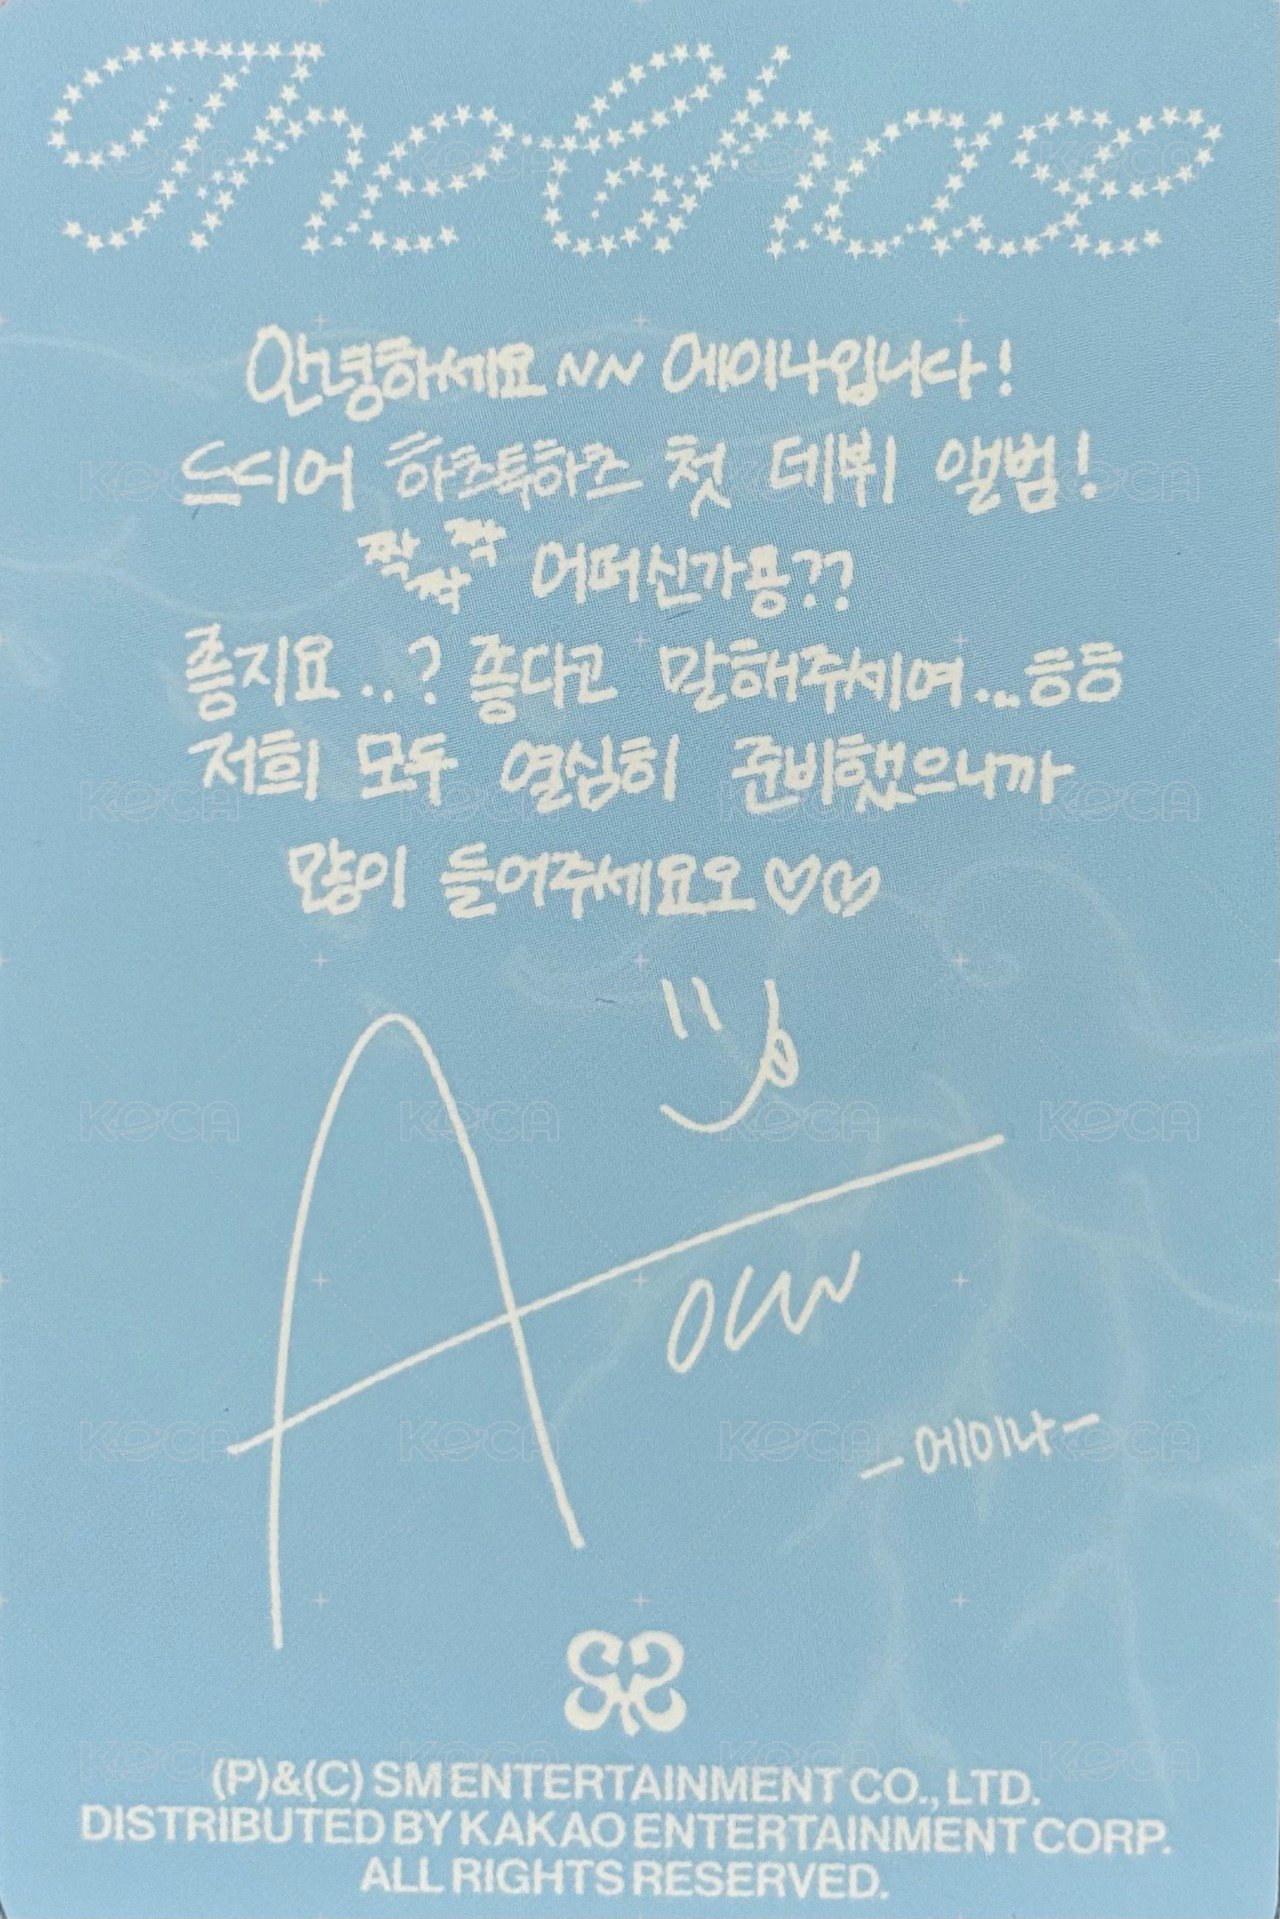 The Chase
안녕하세요~~ 에이나입니다!
드디어 하츠투하츠 첫 데뷔 앨범!
짝 짝 짝 어떠신가용??
좋지요..? 좋다고 말해주세여...흐흐
저희 모두 열심히 준비했으니까
많이 들어주세요오♡♡
A
-에이나-
(P)&(C) SM ENTERTAINMENT CO., LTD.
DISTRIBUTED BY KAKAO ENTERTAINMENT CORP.
ALL RIGHTS RESERVED.
KOCA